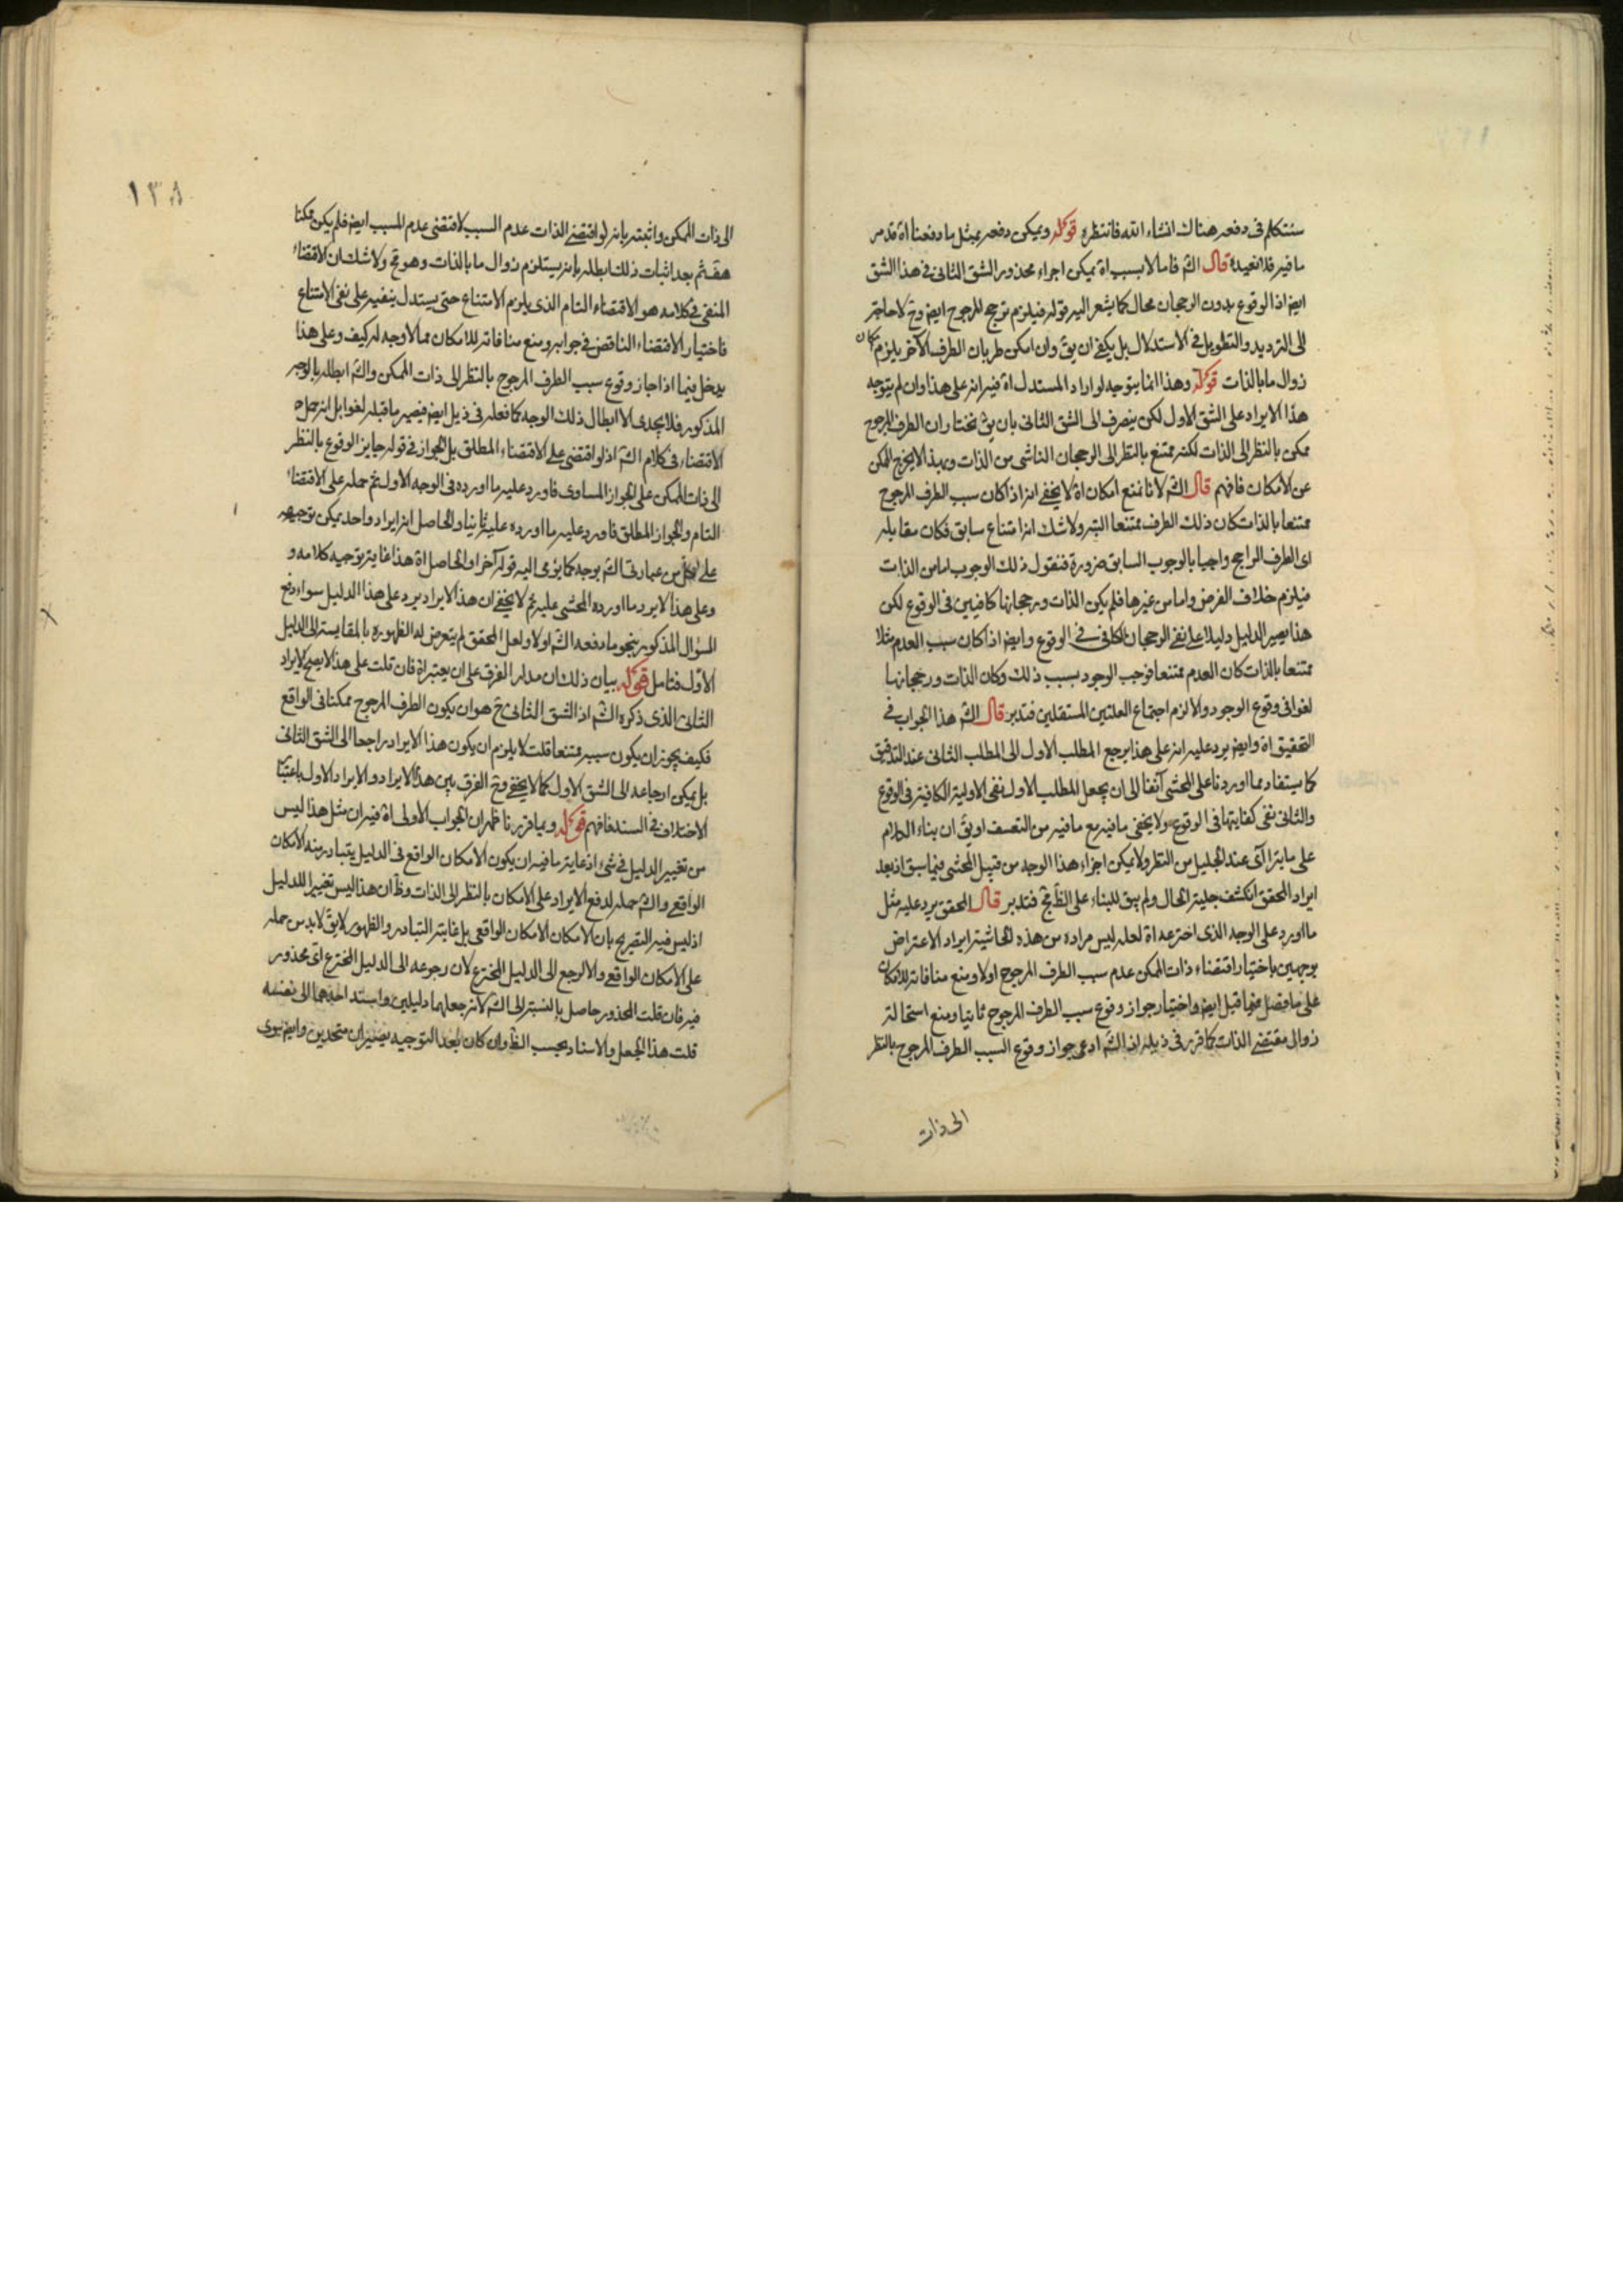 سنتكلم فى دفعه هناك انشاء الله فانتظره قوله ويمكن دفعه بمثل ما دفعنا اه قد مر
ما فيه فلا نعيده قال الش فاما لا بسبب اه يمكن اجراء محذور الشق الثانى فى هذا الشق
ايض اذ الوقوع بدون الرجحان محال كما يشعر اليه قوله فيلزم ترجح المرجوح ايض وح لا حاجة
الى الترديد والتطويل فى الاستدلال بل يكفى ان يق وان امكن طريان الطرف الآخر يلزم امكان
زوال ما بالذات قوله وهذا انما يتوجه لو اراد المستدل اه فيه انه على هذا وان لم يتوجه
هذا الايراد على الشق الاول لكن ينصرف الى الشق الثانى بان يق نختار ان الطرف المرجوح
ممكن بالنظر الى الذات لكنه ممتنع بالنظر الى الرجحان الناشى من الذات وبهذا لا يخرج الممكن
عن الامكان فافهم قال الش لانا نمنع امكان اه لا يخفى انه اذا كان سبب الطرف المرجوح
ممتنعا بالذات كان ذلك الطرف ممتنعا البتة ولا شك انه امتناع سابق فكان مقابله
اى الطرف الراجح واجبا بالوجوب السابق ضرورة فنقول ذلك الوجوب اما من الذات
فيلزم خلاف الفرض واما من غيرها فلم يكن الذات ورجحانها كافيين فى الوقوع لكن
هذا يصير الدليل دليلا على نفى الرجحان الكافى فى الوقوع وايض اذا كان سبب العدم مثلا
ممتنعا بالذات كان العدم ممتنعا فوجب الوجود بسبب ذلك وكان الذات ورجحانها
لغوا فى وقوع الوجود والا لزم اجتماع العلتين المستقلين فتدبر قال الش هذا الجواب فى
التحقيق اه وايض يرد عليه انه على هذا يرجع المطلب الاول الى المطلب الثانى عند التدقيق
كما يستفاد مما اوردنا على المحشى آنفا الى ان يجعل المطلب الاول نفى الاولية الكافية فى الوقوع
والثانى نفى كفايتها فى الوقوع ولا يخفى ما فيه مع ما فيه من التعسف او يق ان بناء الكلام
على ما يتراآى عند الجليل من النظر ولا يمكن اجراء هذا الوجه من قبيل المحشى فيما سبق اذ بعد
ايراد المحقق انكشف جلية الحال ولم يبق للبناء على الظ مج فتدبر قال المحقق يرد عليه مثل
ما اورد على الوجه الذى اخترعه اه لعله ليس مراده من هذه الحاشية ايراد الاعتراض
بوجهين باختيار اقتضاء ذات الممكن عدم سبب الطرف المرجوح اولا ومنع منافاته للامكان
على ما فصل فيما قبل ايض واختيار جواز وقوع سبب الطرف المرجوح ثانيا ومنع استحالة
زوال مقتضى الذات كما قرر فى ذيله اذ الش ادعى جواز وقوع السبب الطرف المرجوح بالنظر
الى ذات
١٣٨
الى ذات الممكن واثبته بانه لو اقتضى الذات عدم السبب لاقتضى عدم المسبب ايض فلم يكن ممكنا
هف ثم بعد اثبات ذلك ابطله بانه يستلزم زوال ما بالذات وهو مح ولا شك ان الاقتضاء
المنفى فى كلامه هو الاقتضاء التام الذى يلزم الامتناع حتى يستدل بنفيه على نفى الامتناع
فاختيار الاقتضاء الناقص فى جوابه ومنع منافاته للامكان مما لا وجه له كيف وعلى هذا
يدخل فيما اذا جاز وقوع سبب الطرف المرجوح بالنظر الى ذات الممكن والش ابطله بالوجه
المذكور فلا يجدى الا ابطال ذلك الوجه كما فعله فى ذيل ايض فيصير ما قبله لغوا بل انه حمل
الاقتضاء فى كلام الش اذ لو اقتضى على الاقتضاء المطلق بل الجواز فى قوله جايز الوقوع بالنظر
الى ذات الممكن على الجواز المساوى فاورد عليه ما اورده فى الوجه الاول ثم حمله على الاقتضاء
التام والجواز المطلق فاورد عليه ما اورده عليه ثانيا والحاصل انه ايراد واحد يمكن توجيهه
على كل من عبارتى الش بوجه كما يؤمى اليه قوله آخرا والحاصل اه هذا غاية توجيه كلامه و
وعلى هذا لا يرد ما اورده المحشى عليه ثم لا يخفى ان هذا الايراد يرد على هذا الدليل سواء دفع
السؤال المذكور بنحو ما دفعه الش اولا ولعل المحقق لم يتعرض له لظهوره بالمقايسة الى الدليل
الاول فتامل قوله بيان ذلك ان مدار الفرق على ان يعتبر اه فان قلت على هذا لا يصح الايراد
الثانى الذى ذكره الش اذ الشق الثانى ح هو ان يكون الطرف المرجوح ممكنا فى الواقع
فكيف يجوز ان يكون سببه ممتنعا قلت لا يلزم ان يكون هذا الايراد راجعا الى الشق الثانى
بل يمكن ارجاعه الى الشق الاول كما لا يخفى وح الفرق بين هذا الايراد والايراد الاول باعتبار
الاختلاف فى السند فافهم قوله وبما قررنا ظهر ان الجواب الاولى اه فيه ان مثل هذا ليس
من تغيير الدليل فى شئ اذ غاية ما فيه ان يكون الامكان الواقع فى الدليل يتبادر منه الامكان
الواقعى والش حمله لدفع الايراد على الامكان بالنظر الى الذات وظ ان هذا ليس تغييرا للدليل
اذ ليس فيه التصريح بان الامكان الامكان الواقعى بل غايته التبادر والظهور لا يق لا بد من حمله
على الامكان الواقعى والا لرجع الى الدليل المخترع لان رجوعه الى الدليل المخترع اى محذور
فيه فان قلت المحذور حاصل بالنسبة الى الش لانه جعلهما دليلين واسند احدهما الى نفسه
قلت هذا الجعل والاسناد بحسب الظ وان كان بعد التوجيه يصيران متحدين وايض